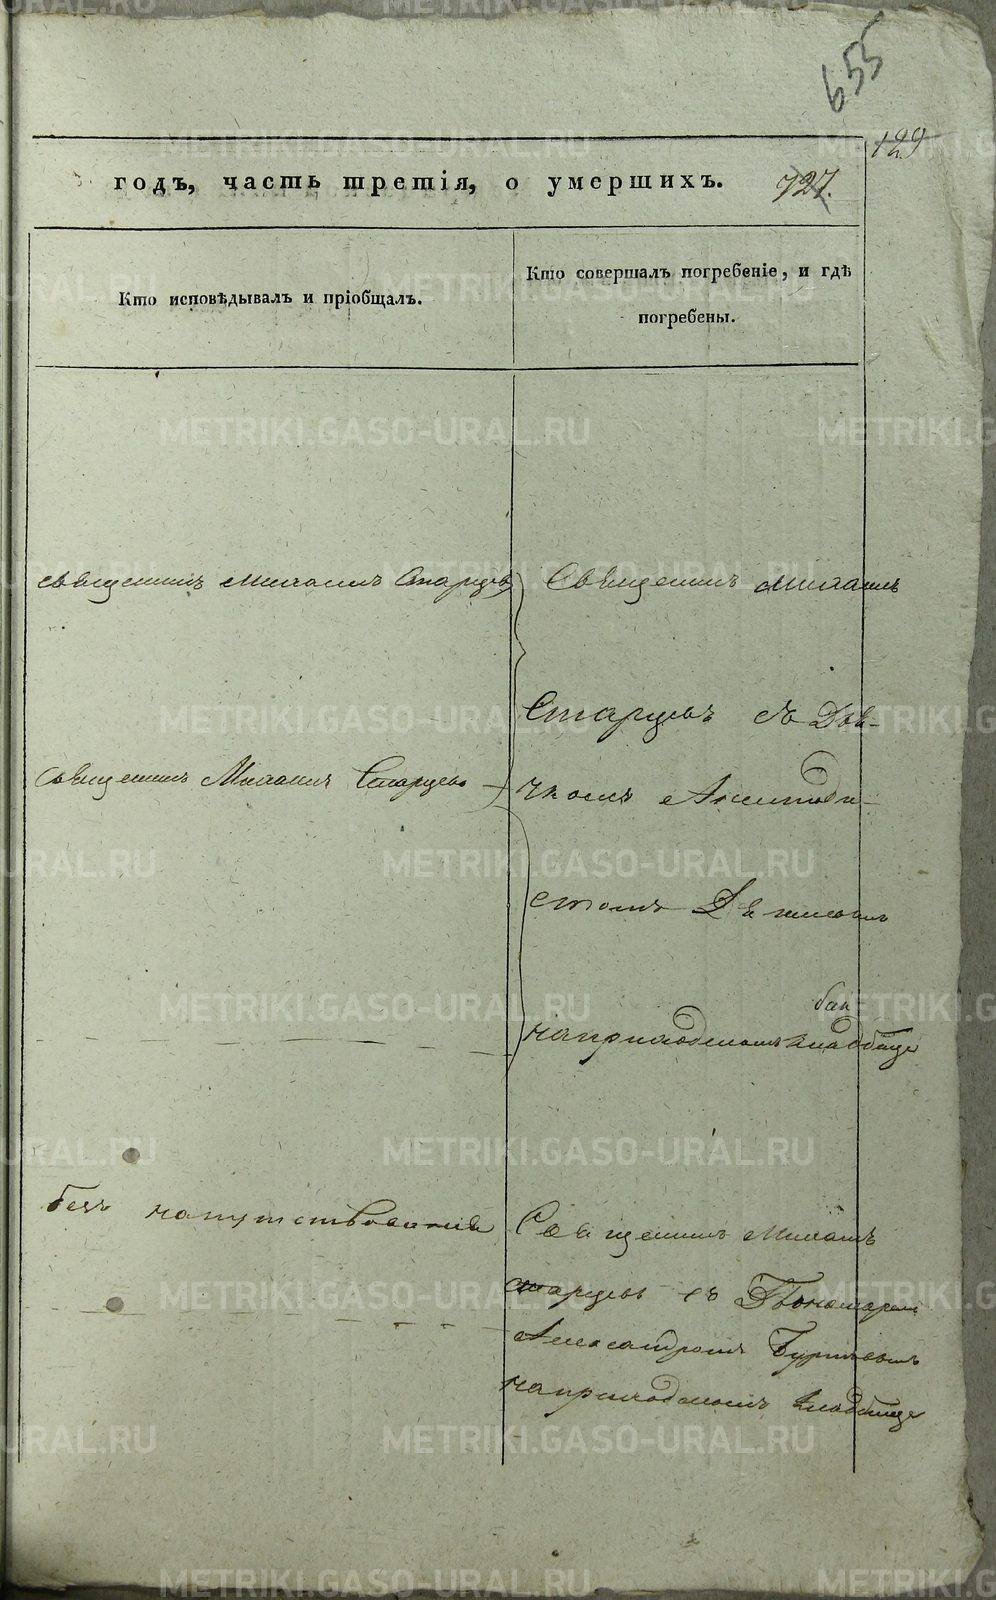 655
129
годъ, часть третія, о умершихъ. 727.
Кто исповѣдывалъ и пріобщалъ.
Кто совершалъ погребеніе, и гдѣ
погребены.
священникъ Михаилъ Старцевъ
Священникъ Михаилъ
Старцевъ съ Дья-
Священникъ Михаилъ Старцевъ
чкомъ
на приходскомъ кладбище
безъ напутствования
Священникъ Михаилъ
Старцевъ съ Пономаремъ
Александромъ
на приходскомъ кладбище
METRIKI.GASO-URAL.RU